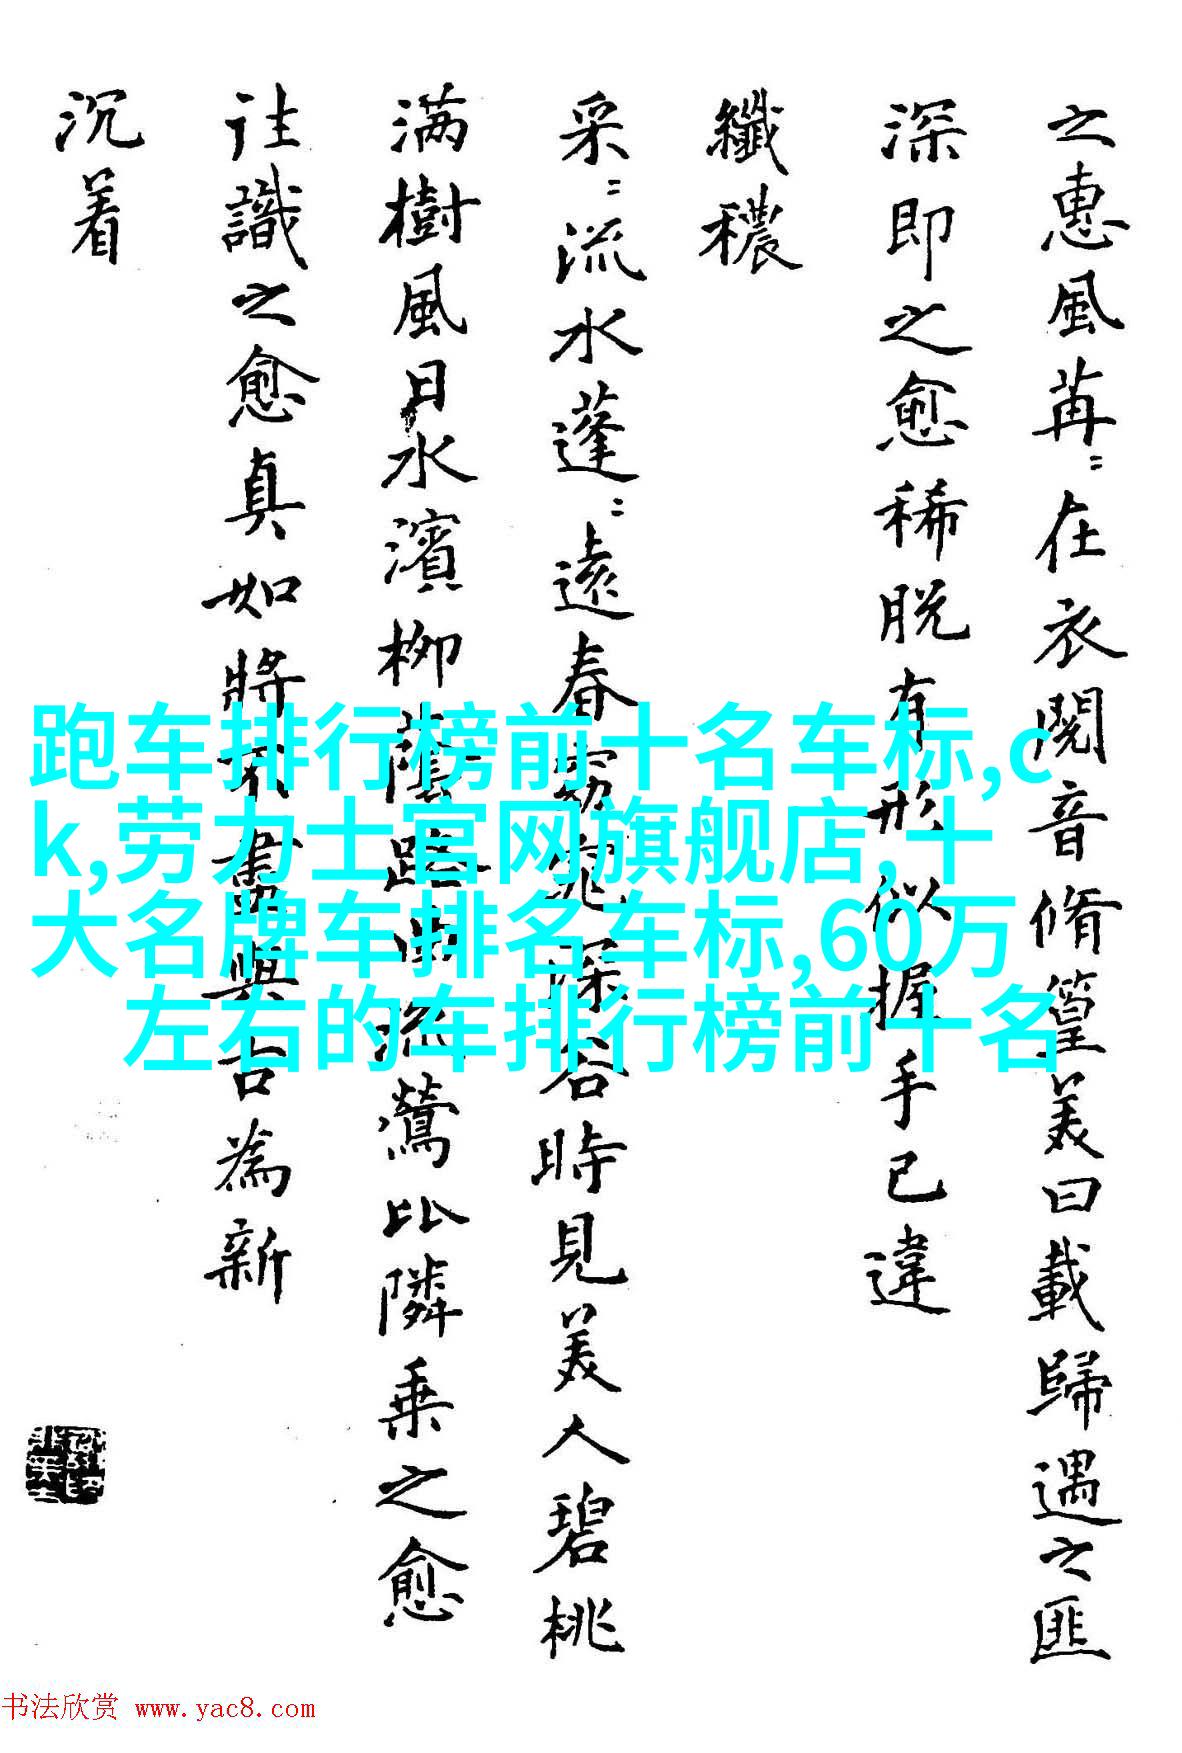 之惠風苒〻在衣閱音脩篁美曰載歸遇之匪
深即之愈稀脱有形似握手已違
纖穠
采〻流水蓬〻遠春窈窕深谷時見美人碧桃
满樹風日水濱柳蔭路曲流鶯比隣乗之愈
往識之愈真如將不盡與古為新
沉着
跑车排行榜前十名车标,c
k,劳力士官网旗舰店,十
大名牌车排名车标,60万
左右的车排行榜前十名
书法欣赏 www.yac8.com